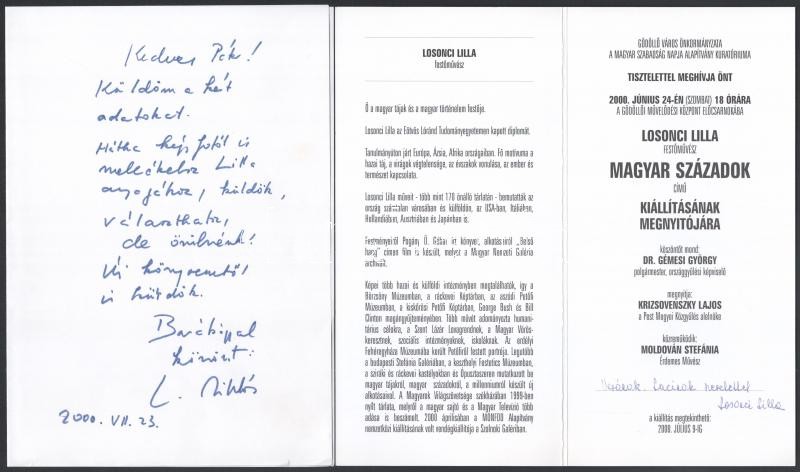 Kedves Pék!
Küldöm a két
adatokat.
Hátha kép, fotót is
mellékelsz Lilla
anyagához, küldök,
választhatsz,
de örülnénk!
Új könyvemből
is küldök.
Barátsággal
köszönt:
L. Miklós
2000. VII. 23.
LOSONCI LILLA
festőművész
Ő a magyar tájak és a magyar történelem festője.
Losonci Lilla az Eötvös Loránd Tudományegyetemen kapott diplomát.
Tanulmányúton járt Európa, Ázsia, Afrika országaiban. Fő motívuma a
hazai táj, a virágok végtelensége, az évszakok vonulása, az ember és
természet kapcsolata.
Losonci Lilla műveit - több mint 170 önálló tárlatán - bemutatták az
ország számtalan városában és külföldön, az USA-ban, Itáliában,
Hollandiában, Ausztriában és Japánban is.
Festményeiről Pogány Ö. Gábor írt könyvet, alkotásairól „Belső
hang" címen film is készült, melyet a Magyar Nemzeti Galéria
archivált.
Képei több hazai és külföldi intézményben megtalálhatók, így a
Börzsöny Múzeumban, a ráckevei Képtárban, az aszódi Petőfi
Múzeumban, a kiskőrösi Petőfi Képtárban, George Bush és Bill
Clinton magángyűjteményében. Több művét adományozta humani-
tárius célokra, a Szent Lázár Lovagrendnek, a Magyar Vörös-
keresztnek, szociális intézményeknek, iskoláknak. Az erdélyi
Fehéregyháza Múzeumába került Petőfiről festett portréja. Legutóbb
a budapesti Stefánia Galériában, a keszthelyi Festetics Múzeumban,
a sziráki és ráckevei kastélyokban és Ópusztaszeren mutatkozott be
magyar tájakról, magyar századokról, a millenniumról készült új
alkotásaival. A Magyarok Világszövetsége székházában 1999-ben
nyílt tárlata, melyről a magyar sajtó és a Magyar Televízió több
adása is beszámolt. 2000 áprilisában a MONFOD Alapítvány
nemzetközi kiállításának volt vendégkiállítója a Szolnoki Galériában.
GÖDÖLLŐ VÁROS ÖNKORMÁNYZATA
A MAGYAR SZABADSÁG NAPJA ALAPÍTVÁNY KURATÓRIUMA
TISZTELETTEL MEGHÍVJA ÖNT
2000. JÚNIUS 24-ÉN (SZOMBAT) 18 ÓRÁRA
A GÖDÖLLŐI MŰVELŐDÉSI KÖZPONT ELŐCSARNOKÁBA
LOSONCI LILLA
FESTŐMŰVÉSZ
MAGYAR SZÁZADOK
CÍMŰ
KIÁLLÍTÁSÁNAK
MEGNYITÓJÁRA
köszöntőt mond:
DR. GÉMESI GYÖRGY
polgármester, országgyűlési képviselő
megnyitja:
KRIZSOVENSZKY LAJOS
a Pest Megyei Közgyűlés alelnöke
közreműködik:
MOLDOVÁN STEFÁNIA
Érdemes Művész
szeretettel
Losonci Lilla
a kiállítás megtekinthető:
2000. JÚLIUS 9-IG